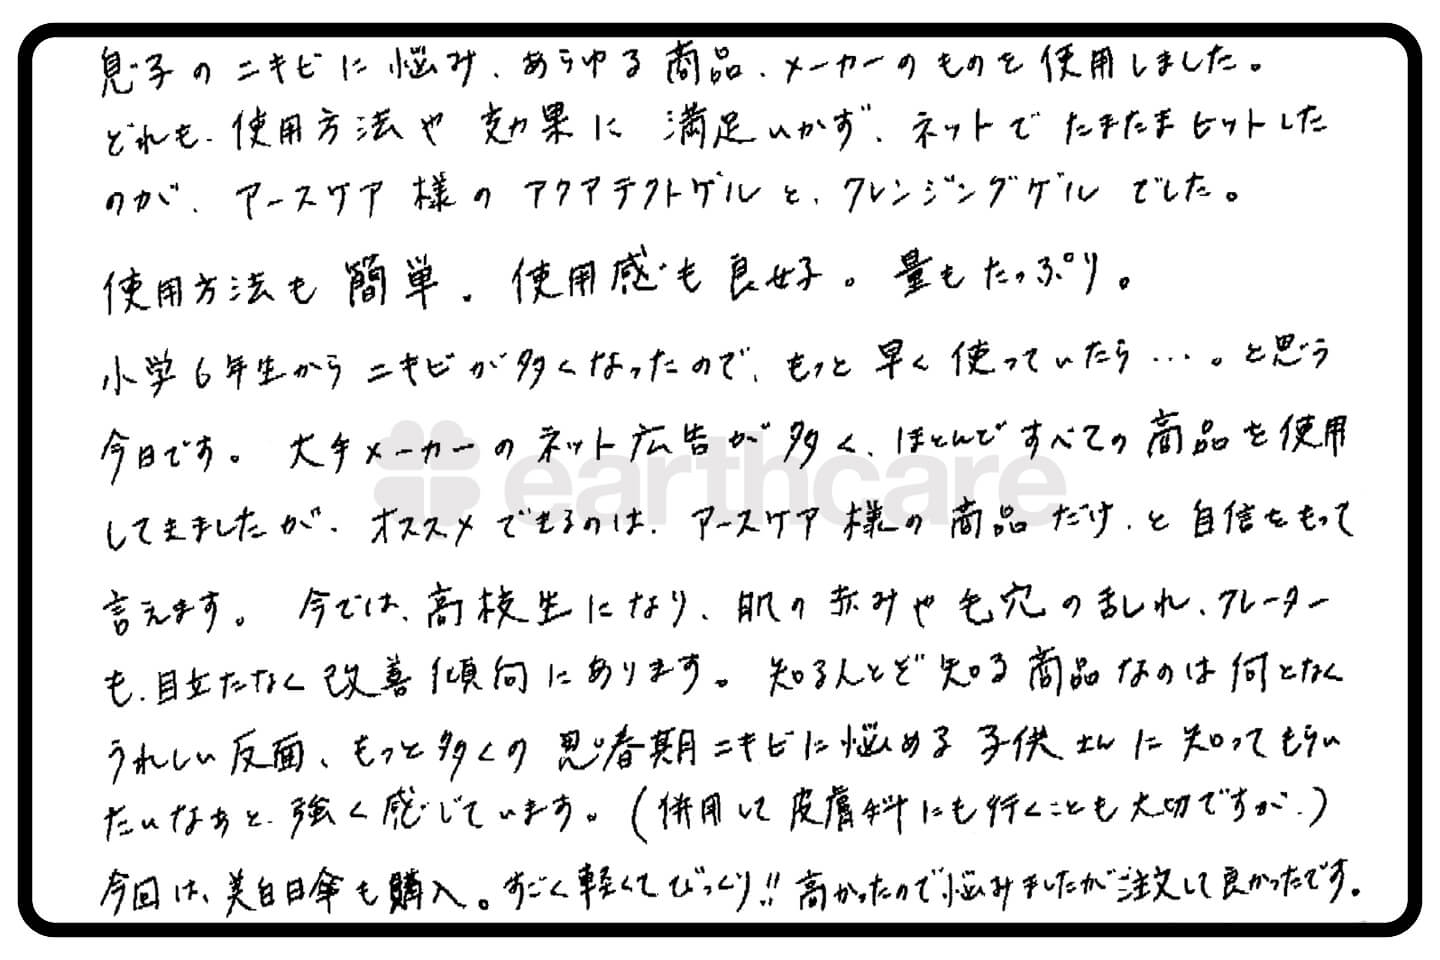 息子のニキビに悩み、あらゆる商品、メーカーのものを使用しました。
どれも、使用方法や効果に満足いかず、ネットでたまたまヒットした
のが、アースケア様のアクアテクトゲルと、クレンジングゲルでした。
使用方法も簡単。使用感も良好。量もたっぷり。
小学6年生からニキビが多くなったので、もっと早く使っていたら…。と思う
今日です。大手メーカーのネット広告が多く、ほとんどすべての商品を使用
してきましたが、オススメできるのは、アースケア様の商品だけ、と自信をもって
言えます。今では、高校生になり、肌の赤みや毛穴の乱れ、クレーター
も、目立たなく改善傾向にあります。知る人とぞ知る商品なのは何となく
うれしい反面、もっと多くの思春期ニキビに悩める子供さんに知ってもらい
たいなぁと、強く感じています。(併用して皮膚科にも行くことも大切ですが、)
今回は、美白日傘も購入。すごく軽くてびっくり!!高かったので悩みましたが注文して良かったです。
earthcare